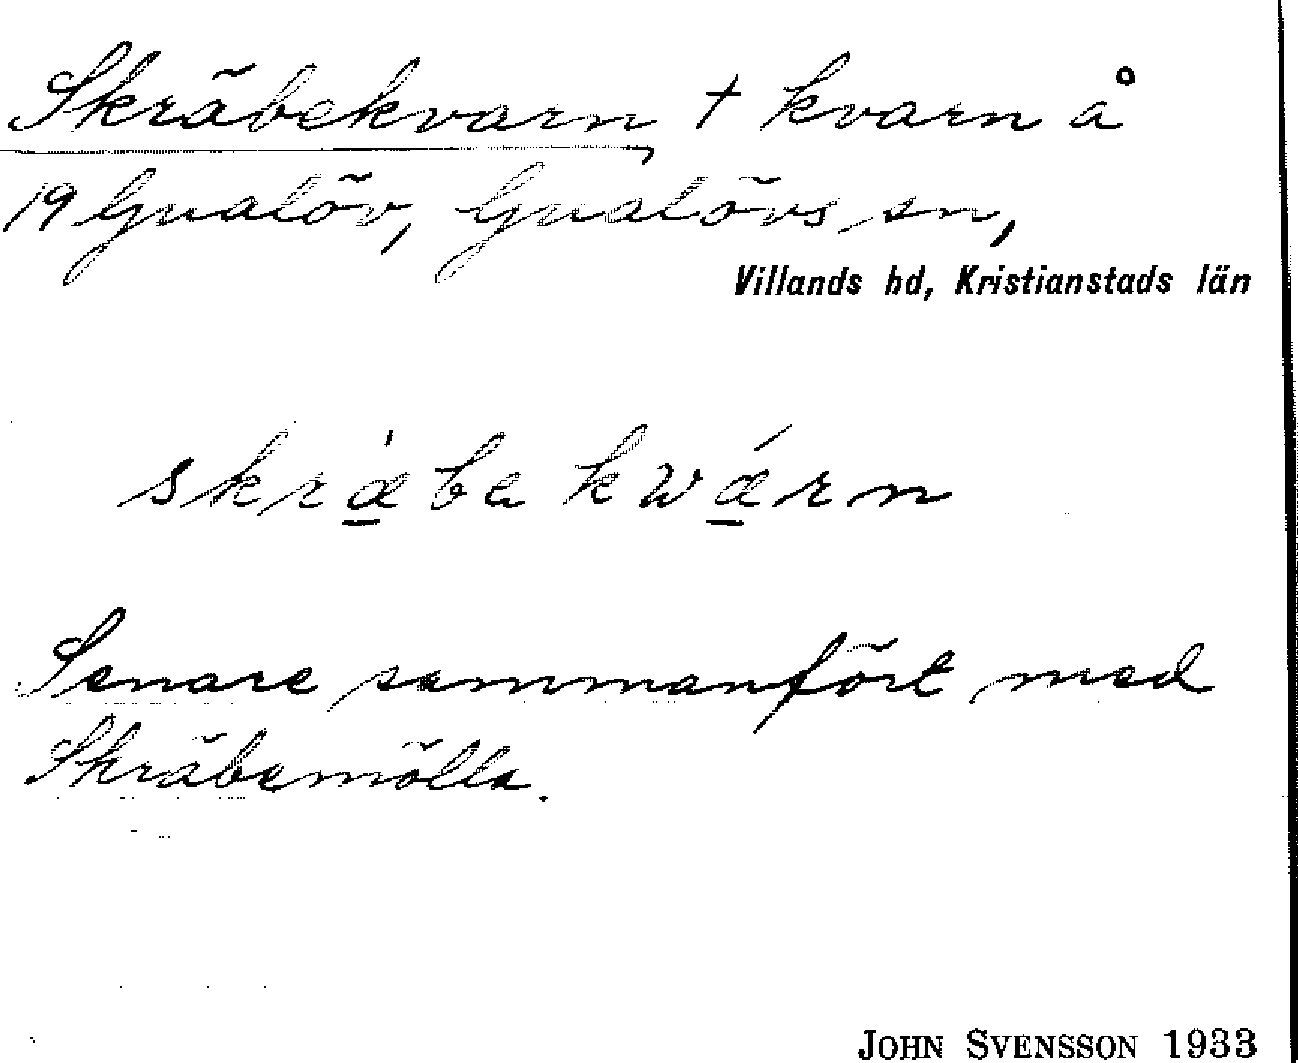 Skräbekvarn † kvarn å
19 Gualöv, Gualövs sn,
Villands hd, Kristianstads län
skræ̀be kwǽrn
Senare sammanfört med
Skräbemölla.
JOHN SVENSSON 1933